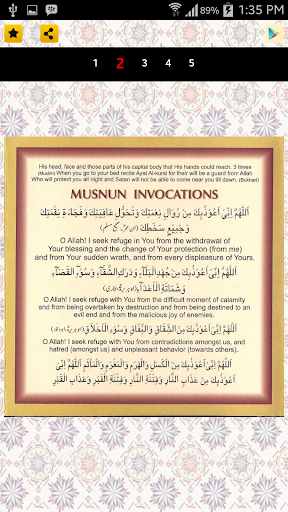 89% 1:35 PM
1 2 3 4 5
His head, face and those parts of his capital body that His hands could reach. 3 times
(Muslim) When you go to your bed recite Ayat Al-kursi for their will be a guard from Allah
Who will protect you all night and Satan will not be able to come near you till dawn. (Bukhari)
MUSNUN INVOCATIONS
اَللّٰهُمَّ اِنِّىْ اَعُوْذُبِكَ مِنْ زَوَالِ نِعْمَتِكَ وَتَحَوُّلِ عَافِيَتِكَ وَفُجَاءَةِ نِقْمَتِكَ
وَجَمِيْعِ سَخَطِكَ
O Allah! I seek refuge in You from the withdrawal of
Your blessing and the change of Your protection (from me)
and from Your sudden wrath, and from every displeasure of Yours.
اَللّٰهُمَّ اِنِّىْ اَعُوْذُبِكَ مِنْ جَهْدِ الْبَلَآءِ وَدَرَكِ الشَّقَآءِ وَسُوْءِ الْقَضَآءِ
وَشَمَاتَةِ الْاَعْدَآءِ
O Allah! I seek refuge with You from the difficult moment of calamity
and from being overtaken by destruction and from being destined to an
evil end and from the malicious joy of enemies.
اَللّٰهُمَّ اِنِّىْ اَعُوْذُبِكَ مِنَ الشِّقَاقِ وَالنِّفَاقِ وَسُوْءِ الْاَخْلَاقِ
O Allah! I seek refuge with You from
contradictions amongst us, and
hatred (amongst us) and unpleasant behavior (towards others).
اَللّٰهُمَّ اِنِّىْ اَعُوْذُبِكَ مِنَ الْكَسَلِ وَالْهَرَمِ وَالْمَغْرَمِ وَالْمَاْثَمِ اَللّٰهُمَّ اِنِّىْ
اَعُوْذُبِكَ مِنْ عَذَابِ النَّارِ وَفِتْنَةِ النَّارِ وَفِتْنَةِ الْقَبْرِ وَعَذَابِ الْقَبْرِ